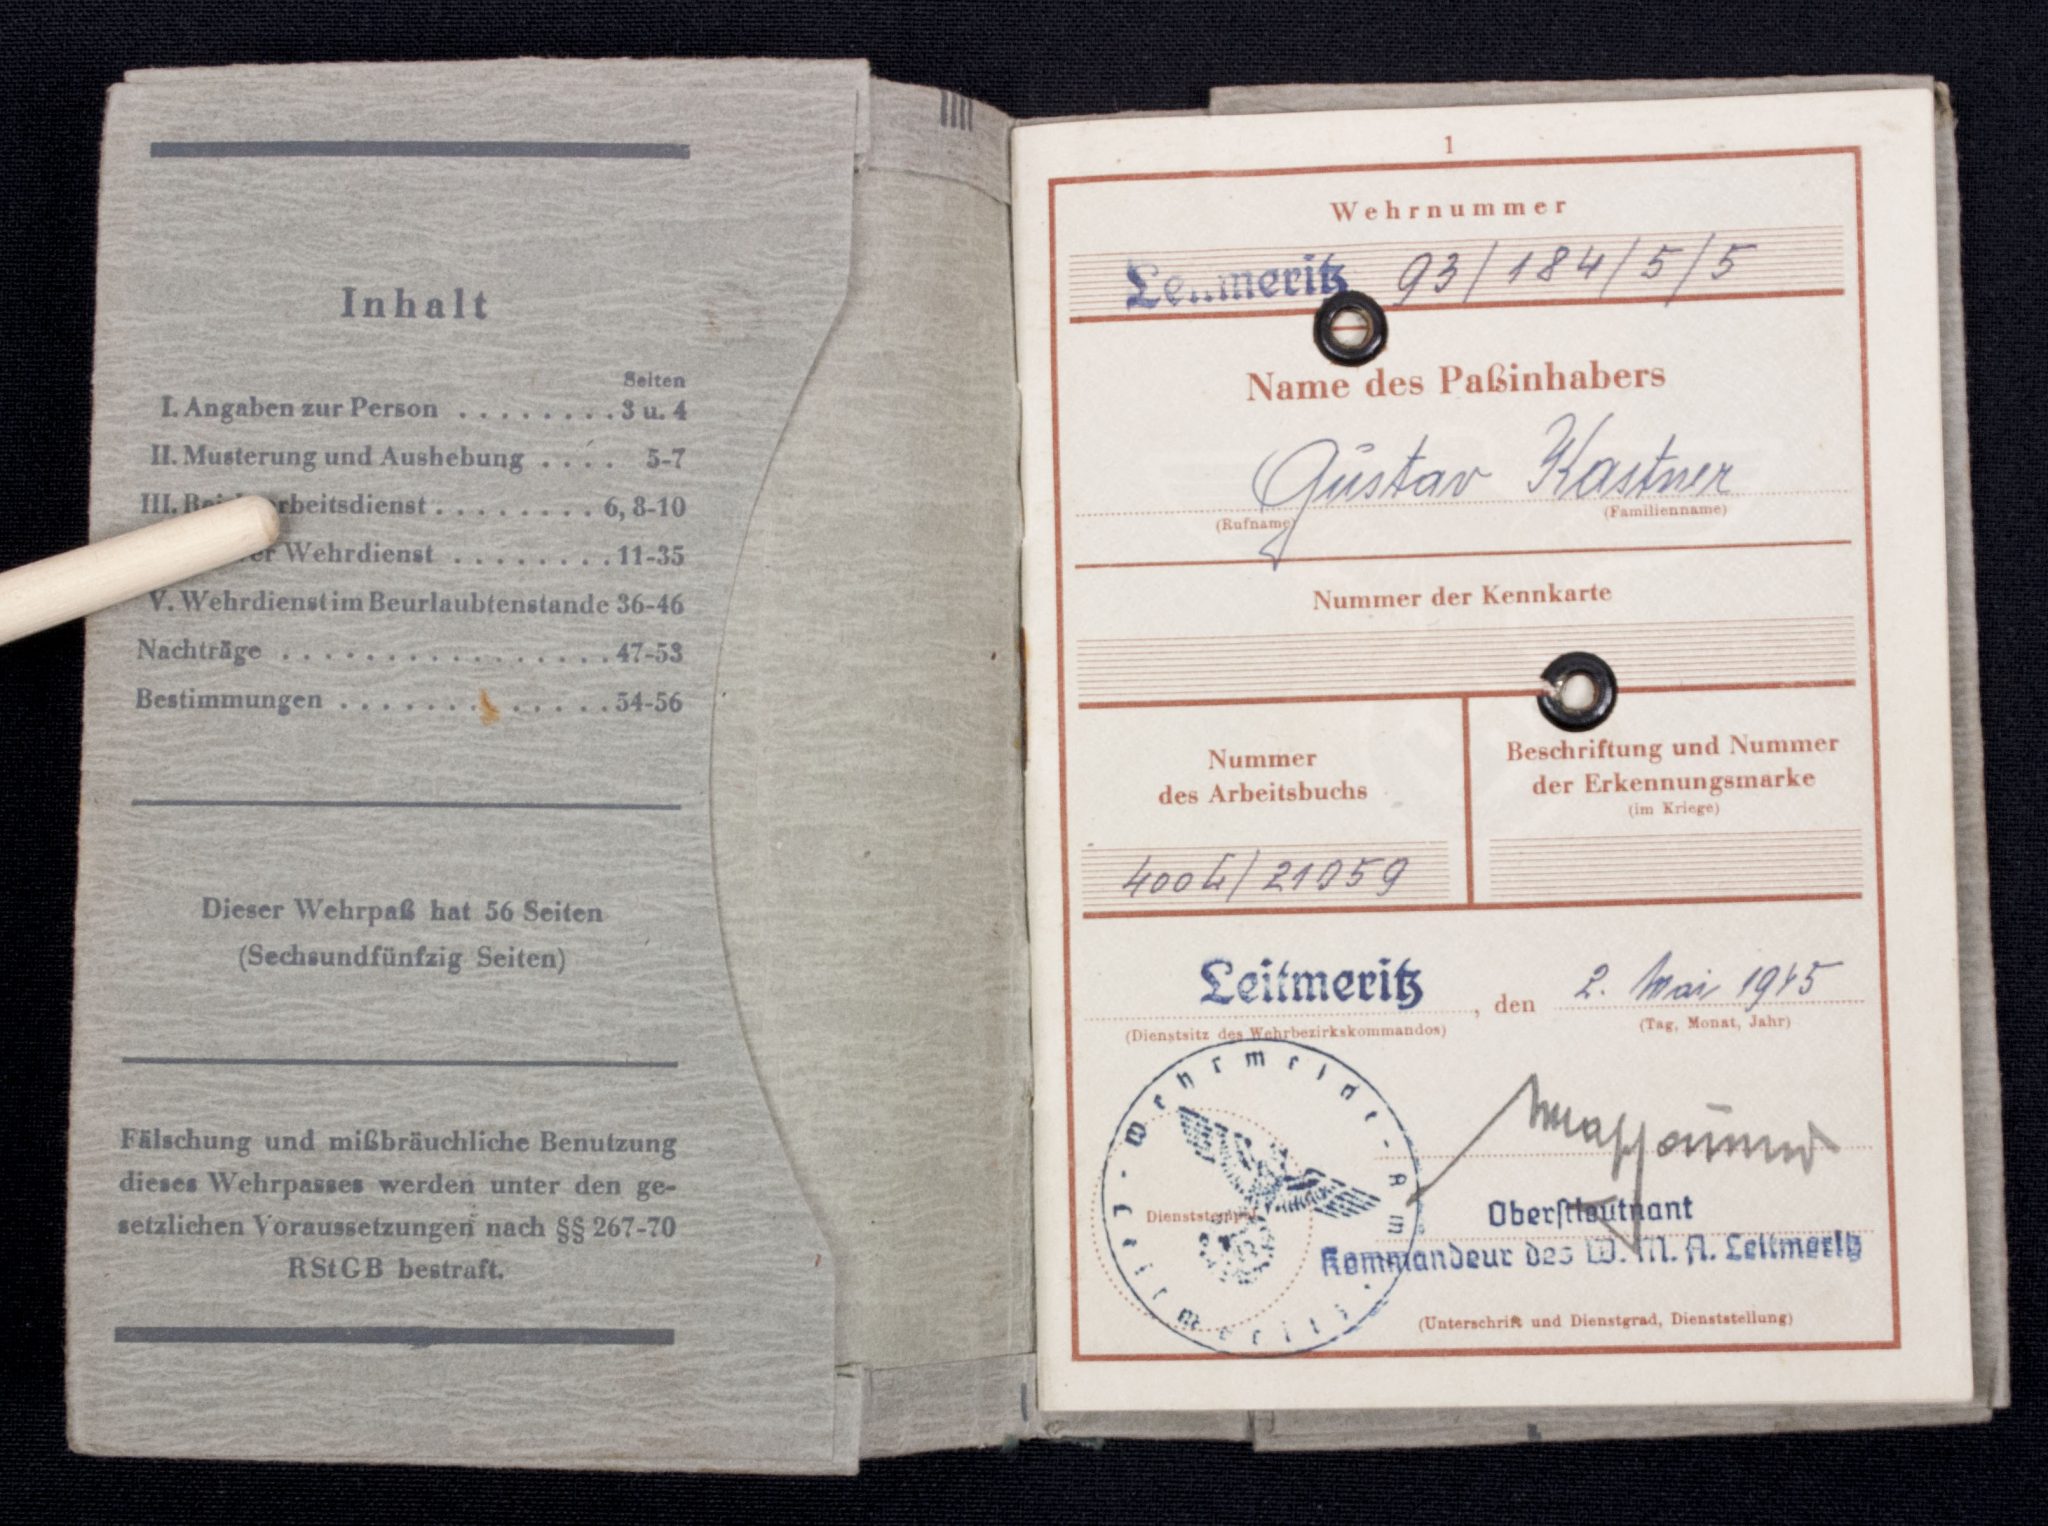 Inhalt
Seiten
I. Angaben zur Person . . . . . . . . 3 u. 4
II. Musterung und Aushebung . . . . 5-7
III. arbeitsdienst . . . . . . . . 6, 8-10
Wehrdienst . . . . . . . . 11-35
V. Wehrdienst im Beurlaubtenstande 36-46
Nachträge . . . . . . . . . . . . . . . . 47-53
Bestimmungen . . . . . . . . . . . . . 54-56
Dieser Wehrpaß hat 56 Seiten
(Sechsundfünfzig Seiten)
Fälschung und mißbräuchliche Benutzung
dieses Wehrpasses werden unter den ge-
setzlichen Voraussetzungen nach §§ 267-70
RStGB bestraft.
1
Wehrnummer
Leitmeritz 93/184/5/5
Name des Paßinhabers
Gustav Kastner
(Rufname) (Familienname)
Nummer der Kennkarte
Nummer
des Arbeitsbuchs
Beschriftung und Nummer
der Erkennungsmarke
(im Kriege)
Leitmeritz, den 2. Mai 1945
(Dienstsitz des Wehrbezirkskommandos) (Tag, Monat, Jahr)
Wehrmelde-Amt
Leitmeritz
Dienststempel
Oberstleutnant
Kommandeur des W. M. A. Leitmeritz
(Unterschrift und Dienstgrad, Dienststellung)